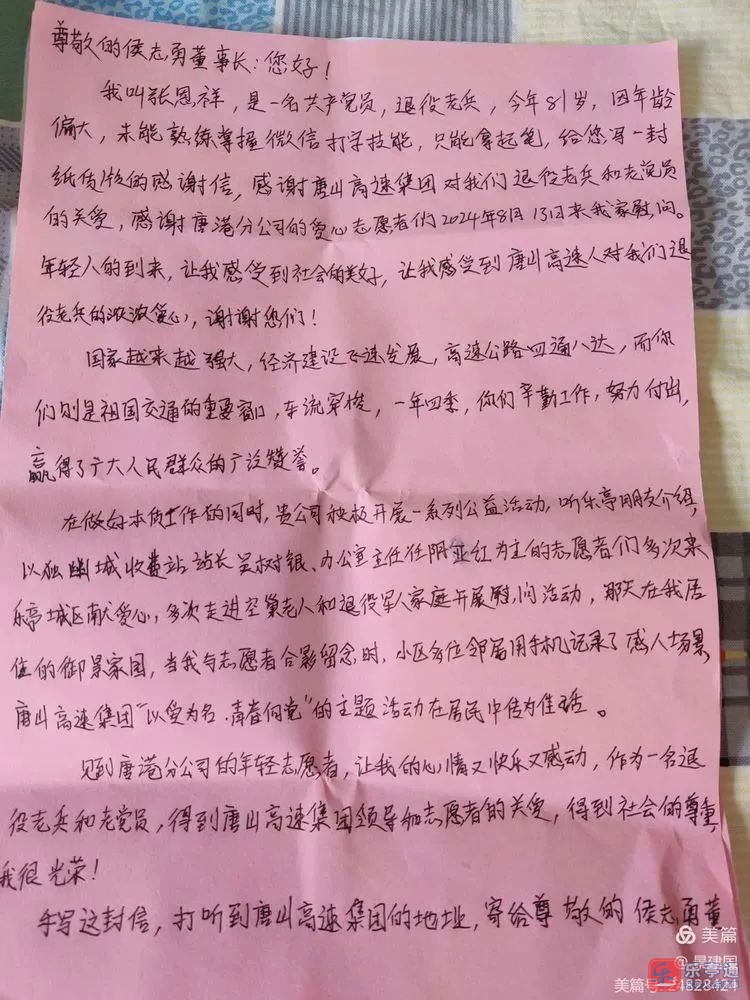 尊敬的侯志勇董事长:您好!
我叫张恩祥,是一名共产党员,退役老兵,今年81岁,因年龄
偏大,未能熟练掌握微信打字技能,只能拿起笔,给您写一封
纸质版的感谢信,感谢唐山高速集团对我们退役老兵和老党员
的关爱,感谢唐港分公司的爱心志愿者们2024年8月13日来我家慰问。
年轻人的到来,让我感受到社会的美好,让我感受到唐山高速人对我们退
役老兵的浓浓爱心,谢谢您们!
国家越来越强大,经济建设飞速发展,高速公路四通八达,而你
们则是祖国交通的重要窗口,车流穿梭,一年四季,你们辛勤工作,努力付出,
赢得了广大人民群众的广泛赞誉。
在做好本质工作的同时,贵公司积极开展一系列公益活动,听乐亭朋友介绍,
以独幽城收费站站长吴树银、办公室主任任阴亚红为主的志愿者们多次来
乐亭城区献爱心,多次走进空巢老人和退役军人家庭开展慰问活动,那天在我居
住的御景家园,当我与志愿者合影留念时,小区多位邻居用手机记录了感人场景,
唐山高速集团"以爱为名·青春向党"的主题活动在居民中传为佳话。
见到唐港分公司的年轻志愿者,让我的心情又快乐又感动,作为一名退
役老兵和老党员,得到唐山高速集团领导和志愿者的关爱,得到社会的尊重,
我很光荣!
手写这封信,打听到唐山高速集团的地址,寄给尊敬的侯志勇董
美篇
@晁建国
乐亭通
美篇号:24828424